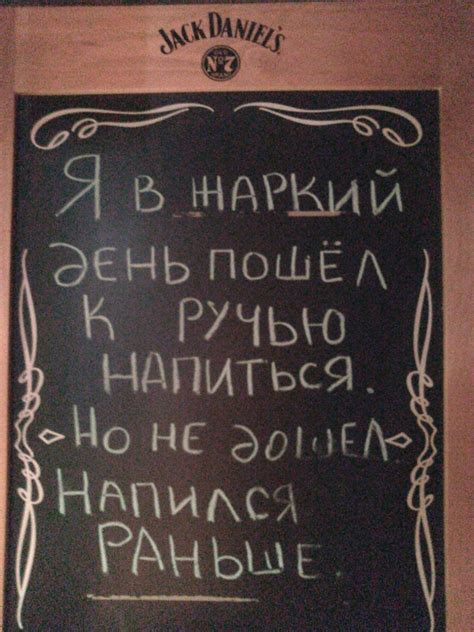 JACK DANIEL'S
OLD
Nº7
BRAND
Я В ЖАРКИЙ
ДЕНЬ ПОШЁЛ
К РУЧЬЮ
НАПИТЬСЯ.
НО НЕ ДОШЕЛ.
НАПИЛСЯ
РАНЬШЕ.